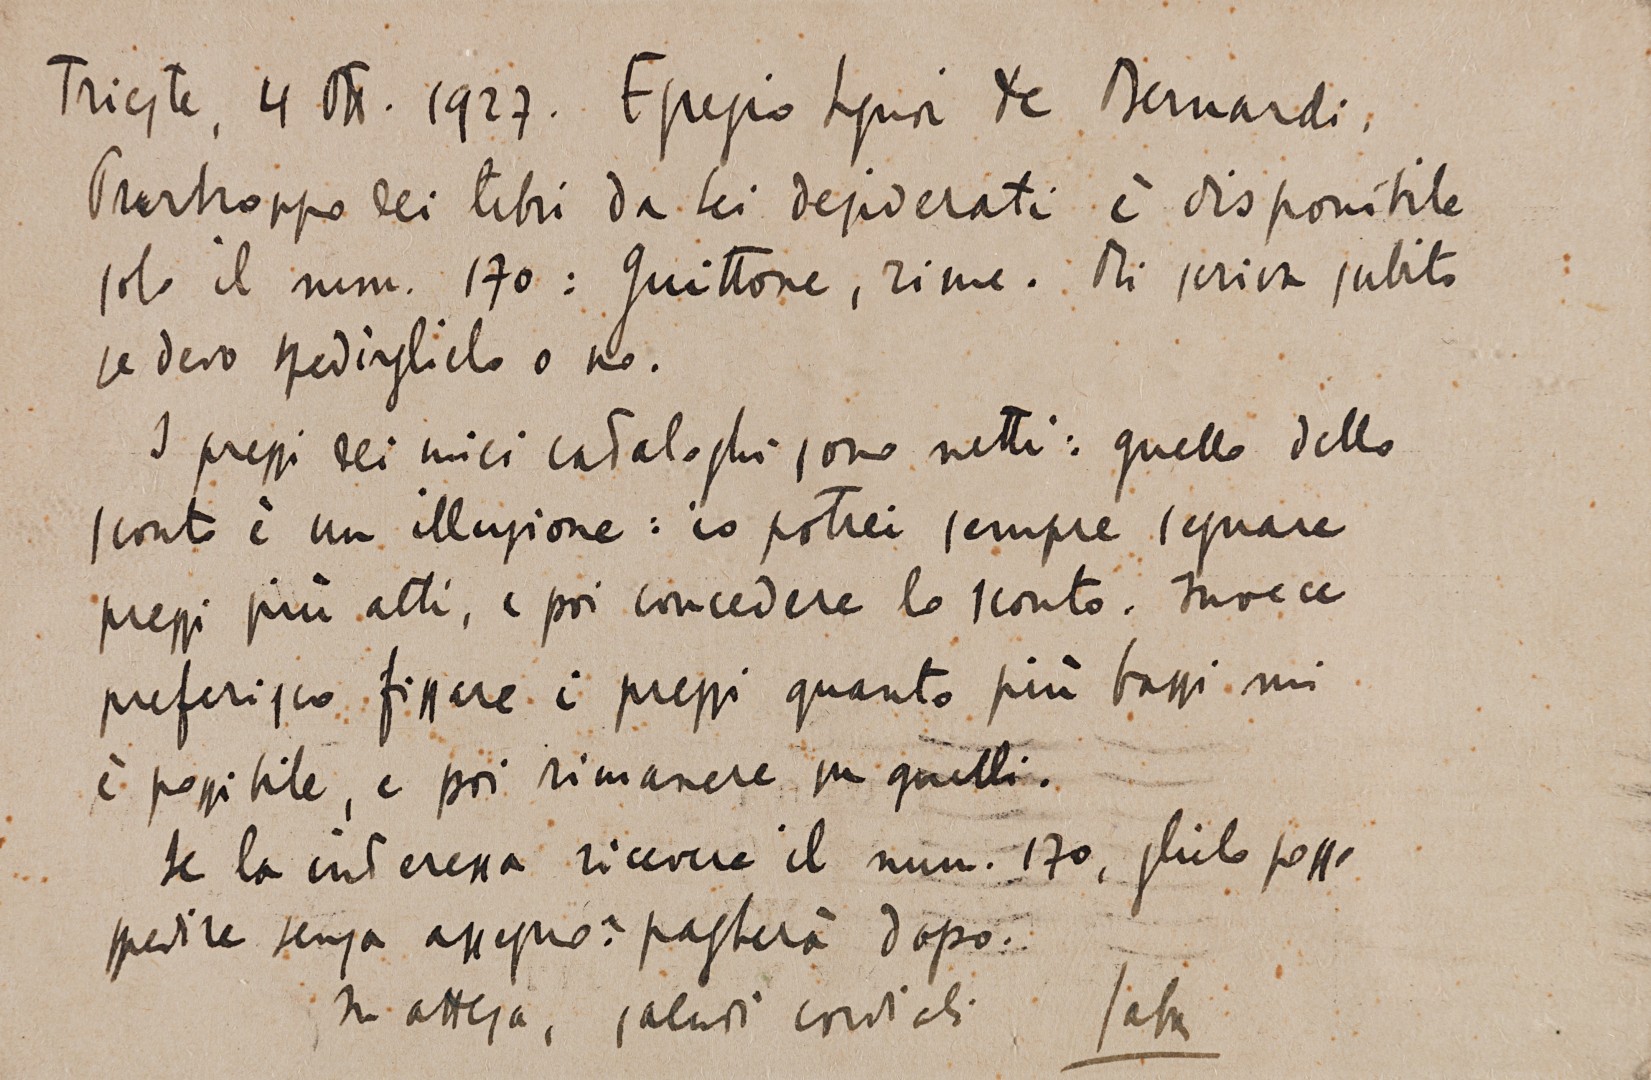 Trieste, 4 Ott. 1927. Egregio Signor de Bernardi,
Purtroppo dei libri da Lei desiderati è disponibile
solo il num. 170: Guittone, rime. Mi scriva subito
se devo spedirglielo o no.
I prezzi dei miei cataloghi sono netti: quello dello
sconto è un illusione: io potrei sempre segnare
prezzi più alti, e poi concedere lo sconto. Invece
preferisco fissare i prezzi quanto più bassi mi
è possibile, e poi rimanere su quelli.
Se la interessa ricevere il num. 170, glielo posso
spedire senza assegno: pagherà dopo.
In attesa, saluti cordiali Saba